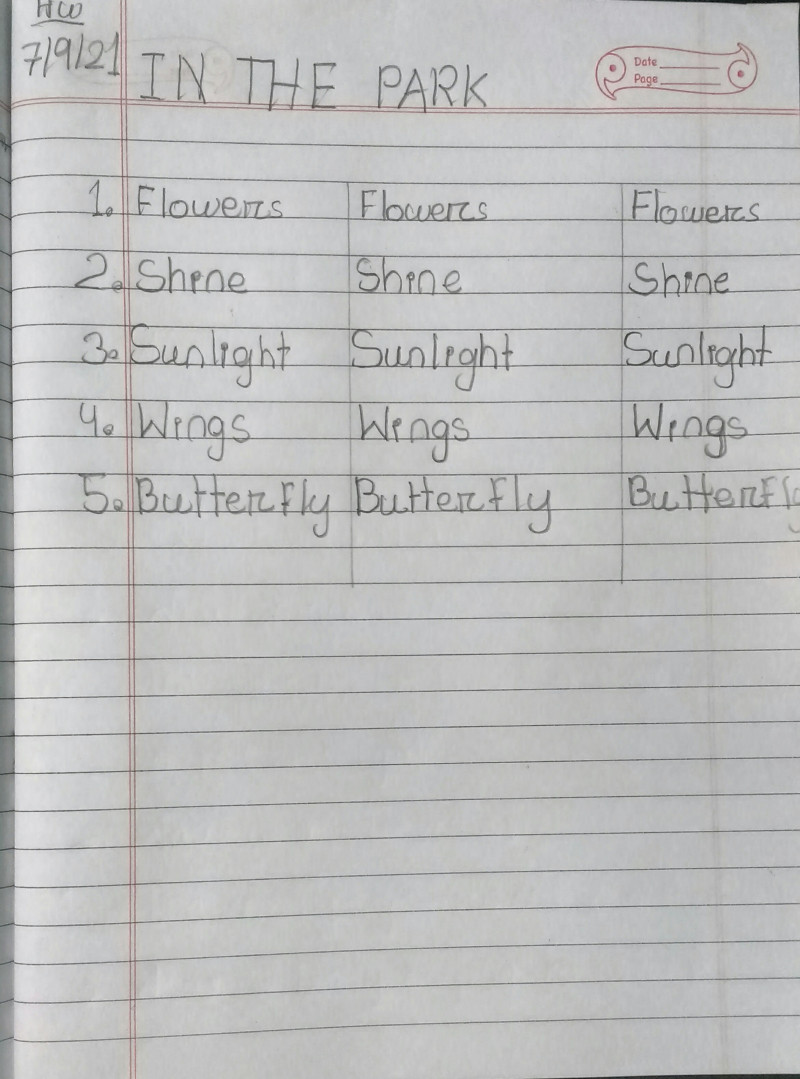 HW
7/9/21 IN THE PARK
Date
Page
1. Flowers Flowers Flowers
2. Shine Shine Shine
3. Sunlight Sunlight Sunlight
4. Wings Wings Wings
5. Butterfly Butterfly Butterfl